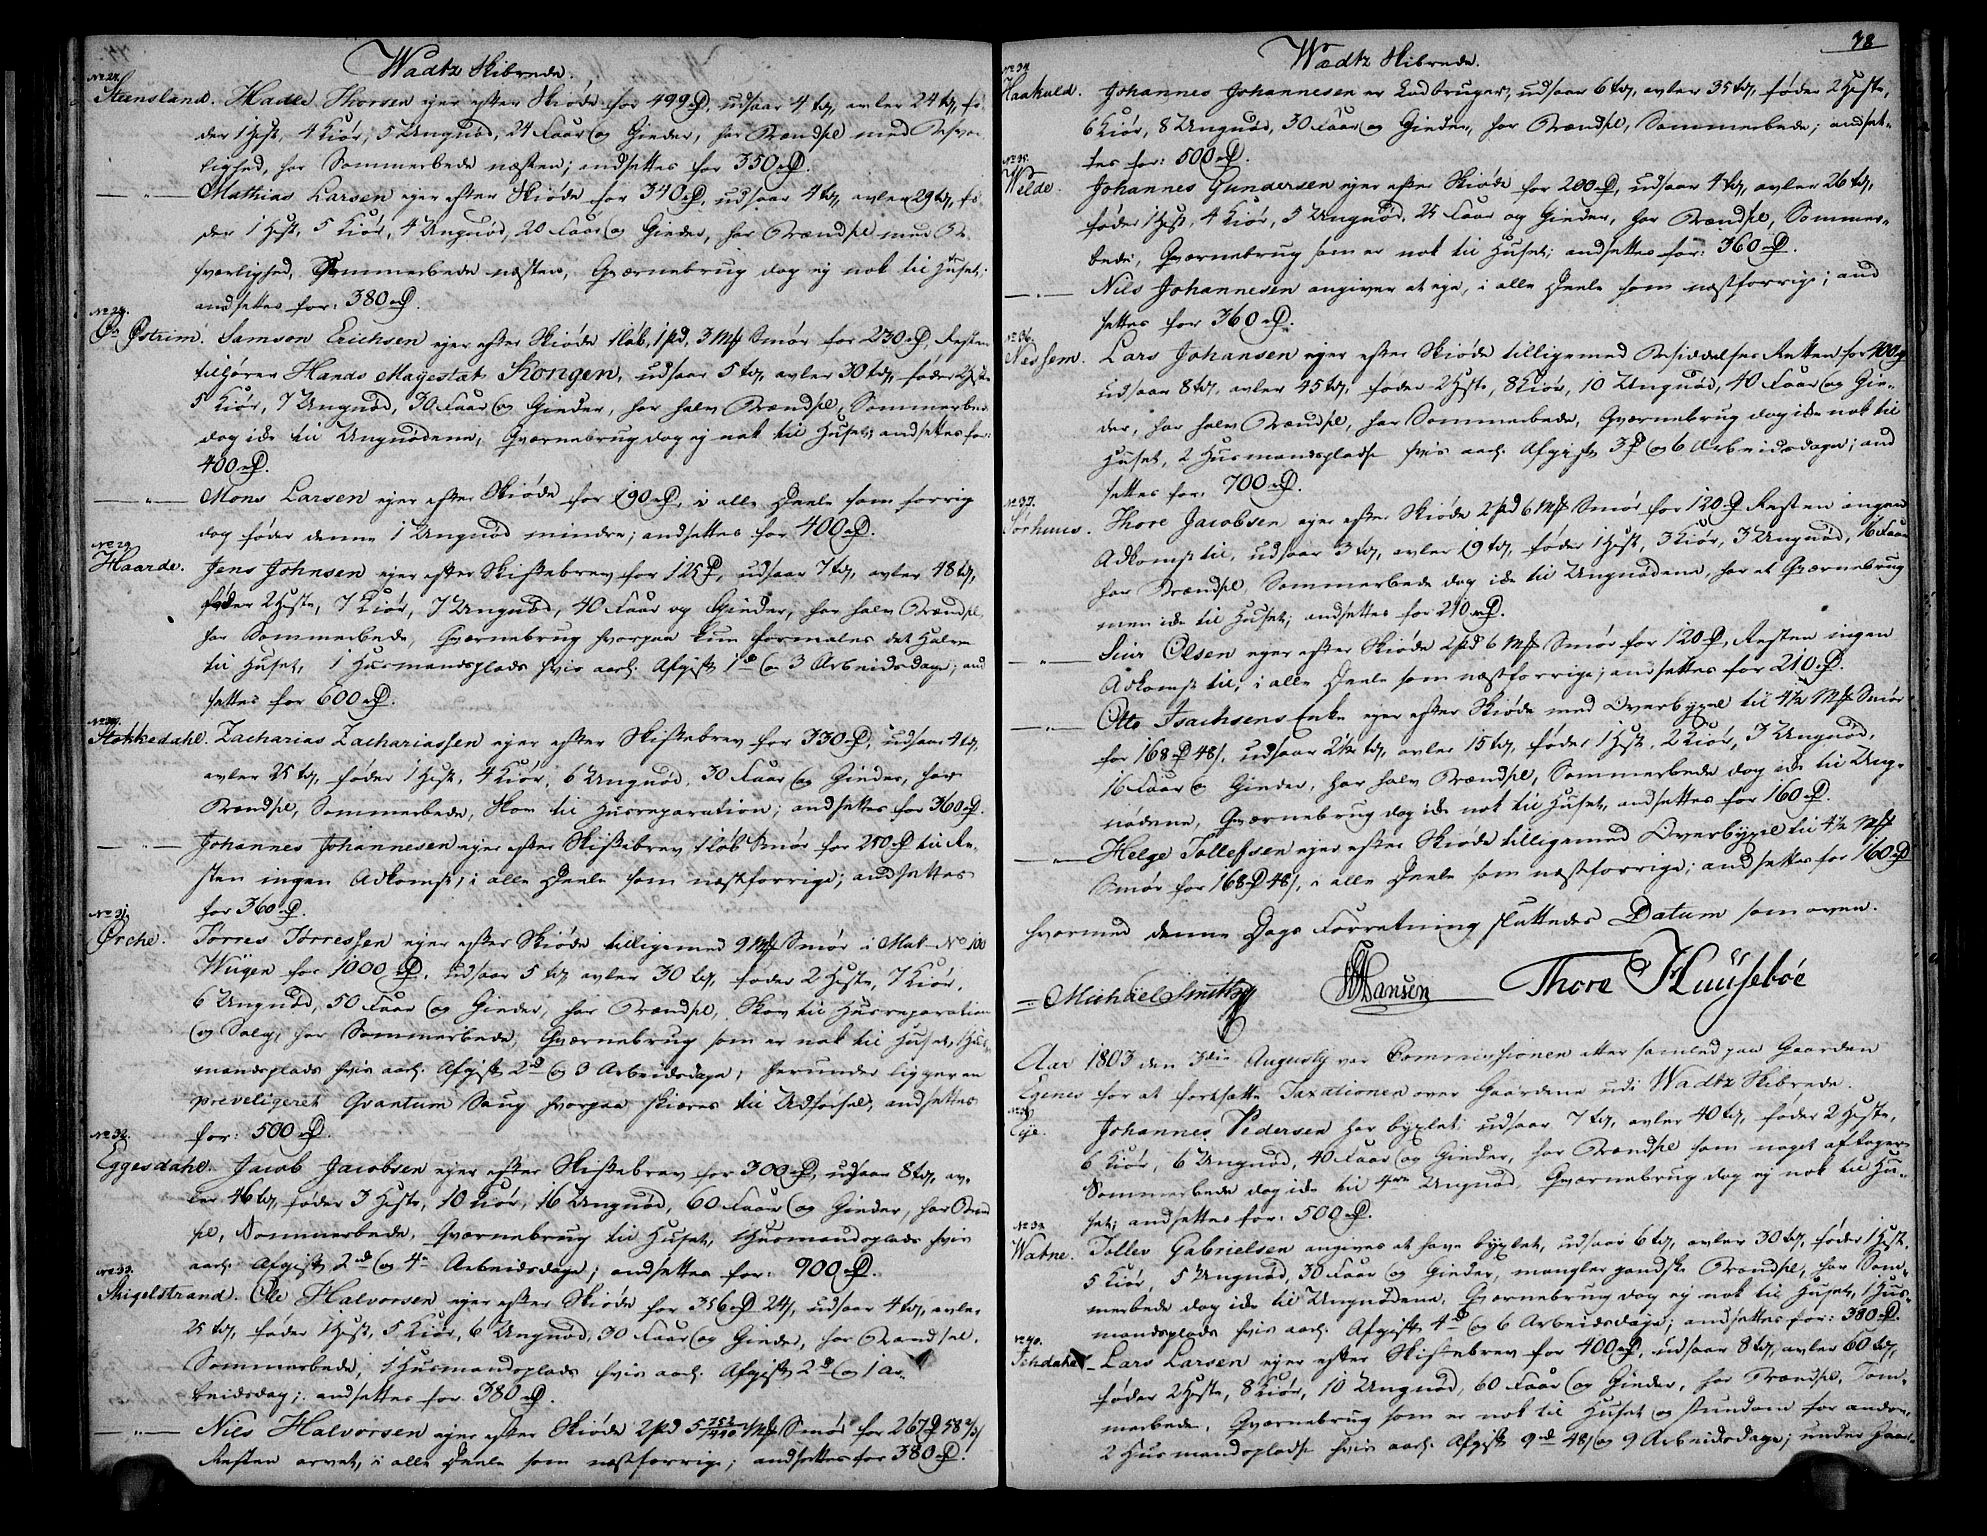 Wadtz Skibrede.
No 27.
Steensland. Hadle Thorsen ejer efter Skiøde for 499 rD, udsaar 4 tdr, avler 24 tdr, fø-
der 1 Hest, 4 Kiør, 5 Ungnød, 24 Faar og Gieder, har Brændsel med Besvær-
lighed, har Sommerbede næsten; andsettes for 350 rD.
— " — Mathias Larsen ejer efter Skiøde for 340 rD, udsaar 4 tdr, avler 29 tdr, fø-
der 1 Hest, 5 Kiør, 4 Ungnød, 20 Faar og Gieder, har Brændsel med Be-
sværlighed, Sommerbede næsten, Qværnebrug dog ej nok til Huset;
andsettes for: 380 rD.
No 28.
Østrim. Samson Erichsen ejer efter Skiøde 1 løb, 1 pd, 3 Mk Smør for 230 rD, Resten
tilhører Hands Mayestæt Kongen, udsaar 5 tdr, avler 30 tdr, føder 2 Heste
5 Kiør, 7 Ungnød, 30 Faar og Gieder, har halv Brændsel, Sommerbede
dog ikke til Ungnødene, Qværnebrug dog ej nok til Huset, andsettes for:
400 rD.
— " — Mons Larsen ejer efter Skiøde for 190 rD, i alle Deele som forrig
dog føder denne 1 Ungnød mindre; andsettes for 400 rD.
No 29.
Haarde. Jens Johnsen ejer efter Skiftebrev for 125 rD, udsaar 7 tdr, avler 48 tdr,
føder 2 Heste, 7 Kiør, 7 Ungnød, 40 Faar og Gieder, har halv Brændsel,
har Sommerbede, Qværnebrug hvorpaa kun formales det Halve
til Huset, 1 Husmandsplads hvis aarl. Afgift 1 rd og 3 Arbeidsdage; and
settes for 600 rD.
No 30.
Stokkedahl. Zacharias Zachariassen ejer efter Skiftebrev for 330 rD, udsaar 4 tdr,
avler 25 tdr, føder 1 Hest, 4 Kiør, 6 Ungnød, 30 Faar og Gieder, har
Brændsel, Sommerbede, Skov til Husreparation; andsettes for 360 rD.
— " — Johannes Johannesen ejer efter Skiftebrev 1 løb Smør for 250 rD til Re-
sten ingen Adkomst, i alle Deele som næstforrige; andsettes
for 360 rD.
No 31.
Ørche. Torres Torressen ejer efter Skiøde tilligemed 9 Mk Smør i Mat. No 100
Wiigen for 1000 rD, udsaar 5 tdr, avler 30 tdr, føder 2 Heste, 7 Kiør,
6 Ungnød, 50 Faar og Gieder, har Brændsel, Skov til Husreparation
og Salg, har Sommerbede, Qværnebrug som er nok til Huset, 1 Hus-
mandsplads hvis aarl. Afgift 2 rd og 3 Arbeidsdage; herunder ligger en
preveligeret Qvantum Saug hvorpaa skiæres til Udførsel, andsettes
for: 500 rD.
No 32.
Eggesdahl. Jacob Jacobsen ejer efter Skiftebrev for 300 rD, udsaar 8 tdr, av-
ler 46 tdr, føder 3 Heste, 10 Kiør, 16 Ungnød, 60 Faar og Gieder, har Brænd
sel, Sommerbede, Qværnebrug til Huset, 1 Husmandsplads hvis
aarl. Afgift 2 rd og 4 Arbeidsdage; andsettes for: 900 rD.
No 33.
Skigelstrand. Ole Halvorsen ejer efter Skiøde for 356 rD 24 s, udsaar 4 tdr, avler
25 tdr, føder 1 Hest, 5 Kiør, 6 Ungnød, 30 Faar og Gieder, har Brændsel,
Sommerbede, 1 Husmandsplads hvis aarl. Afgift 2 rd og 1 ar-
beidsdag; andsettes for 380 rD.
— " — Nils Halvorsen ejer efter Skiøde 2 pd 5 Mk Smør for 267 rD
Resten arvet, i alle Deele som næstforrige; andsettes for 380 rD.
78
Wadtz Skibrede.
No 34.
Haakuld. Johannes Johannesen er Landbruger, udsaar 6 tdr, avler 35 tdr, føder 2 Heste,
6 Kiør, 8 Ungnød, 30 Faar og Gieder, har Brændsel, Sommerbede; andset-
tes for: 500 rD.
No 35.
Welde. Johannes Gundersen ejer efter Skiøde for 200 rD, udsaar 4 tdr, avler 26 tdr,
føder 1 Hest, 4 Kiør, 5 Ungnød, 25 Faar og Gieder, har Brændsel, Sommer-
bede, Qværnebrug som er nok til Huset; andsettes for: 360 rD.
— " — Nils Johannesen angiver at eje, i alle Deele som næstforrige; and
settes for 360 rD.
No 36.
Nessem. Lars Johansen ejer efter Skiøde tilligemed Besiddelses Retten for 400 rD
udsaar 8 tdr, avler 45 tdr, føder 2 Heste, 8 Kiør, 10 Ungnød, 40 Faar og Gie-
der, har halv Brændsel, har Sommerbede, Qværnebrug dog ikke nok til
Huset, 2 Husmandspladse hvis aarl. Afgift 3 rD og 6 Arbeidsdage; and
settes for: 700 rD.
No 37.
Sørhuus. Thore Jacobsen ejer efter Skiøde 2 pd 6 Mk Smør for 120 rD Resten ingen
Adkomst til, udsaar 3 tdr, avler 19 tdr, føder 1 Hest, 3 Kiør, 3 Ungnød, 16 Faar
har Brændsel Sommerbede dog ikke til Ungnødene, har et Qværnebrug
men ikke til Huset; andsettes for 210 rD.
— " — Siur Olsen ejer efter Skiøde 2 pd 6 Mk Smør for 120 rD, Resten ingen
Adkomst til, i alle Deele som næstforrige; andsettes for 210 rD.
— " — Otto Isachsens Enke ejer efter Skiøde med Overbygsel til 4½ Mk Smør
for 168 rD 48 s, udsaar 2½ tdr, avler 15 tdr, føder 1 Hest, 2 Kiør, 3 Ungnød,
16 Faar og Gieder, har halv Brændsel, Sommerbede dog ikke til Ung-
nødene, Qværnebrug dog ikke nok til Huset, andsettes for 160 rD.
— " — Helge Tollefsen ejer efter Skiøde tilligemed Overbygsel til 4½ Mk
Smør for 168 rD 48 s, i alle Deele som næstforrige; andsettes for 160 rD
hvormed denne Dags Forretning sluttedes Datum som oven.
Michael Smith Hansen Thore Huusebøe
Aar 1803 den 3die Augusty var Commissionen atter samled paa Gaarden
Egenes for at fortsette Taxationen over Gaardene udi Wadtz Skibrede.
No 38.
Eie. Johannes Pedersen har bygslet; udsaar 7 tdr, avler 40 tdr, føder 2 Heste,
6 Kiør, 6 Ungnød, 40 Faar og Gieder, har Brændsel som noget aftager
Sommerbede dog ikke til Ungnød, Qværnebrug dog ej nok til Hu-
set; andsettes for: 500 rD.
No 39.
Watne. Tollev Gabrielsen angives at have bygslet, udsaar 6 tdr, avler 30 tdr, føder 1 Hest,
5 Kiør, 5 Ungnød, 30 Faar og Gieder, mangler gandske Brændsel, har Som-
merbede dog ikke til Ungnødene, Qværnebrug dog ej nok til Huset, 1 Hus-
mandsplads hvis aarl. Afgift 4 rd og 6 Arbeidsdage; andsettes for: 380 rD.
No 40.
Ichdahl — Lars Larsen ejer efter Skiftebrev for 400 rD, udsaar 8 tdr, avler 60 tdr,
føder 2 Heste, 8 Kiør, 10 Ungnød, 60 Faar og Gieder, har Brændsel, Som-
merbede, Qværnebrug som er nok til Huset og stundom for andre,
2 Husmandspladse hvis aarl. Afgift 9 rd 48 s og 9 Arbeidsdage; under Gaar-